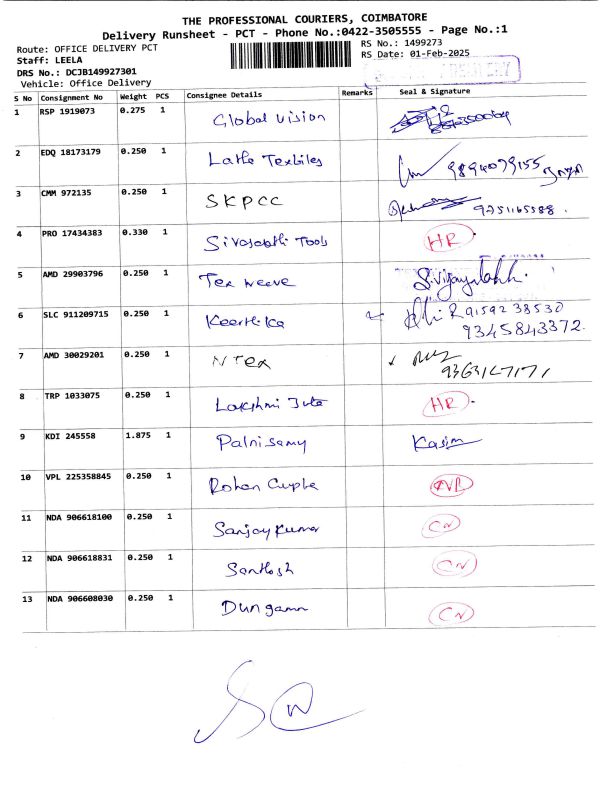 THE PROFESSIONAL COURIERS, COIMBATORE
Delivery Runsheet - PCT - Phone No.:0422-3505555 - Page No.:1
Route: OFFICE DELIVERY PCT RS No.: 1499273
Staff: LEELA RS Date: 01-Feb-2025
DRS No.: DCJB149927301
Vehicle: Office Delivery
S No Consignment No Weight PCS Consignee Details Remarks Seal & Signature
1 RSP 1919073 0.275 1 Global vision
2 EDQ 18173179 0.250 1 Lathe Textiles 9894099155
3 CMM 972135 0.250 1 SKPCC 9251165588.
4 PRO 17434383 0.330 1 Sivasakthi Tools HR
5 AMD 29903796 0.250 1 Tex weeve
6 SLC 911209715 0.250 1 Keerthika 9159238530
9345843372
7 AMD 30029201 0.250 1 NTex
9363147171
8 TRP 1033075 0.250 1 Lakshmi Jute HR
9 KDI 245558 1.875 1 Palnisamy Kasim
10 VPL 225358845 0.250 1 Rohan Gupta
11 NDA 906618100 0.250 1 Sanjay Kumar CN
12 NDA 906618831 0.250 1 Santhosh CN
13 NDA 906608030 0.250 1 Dungamn CN